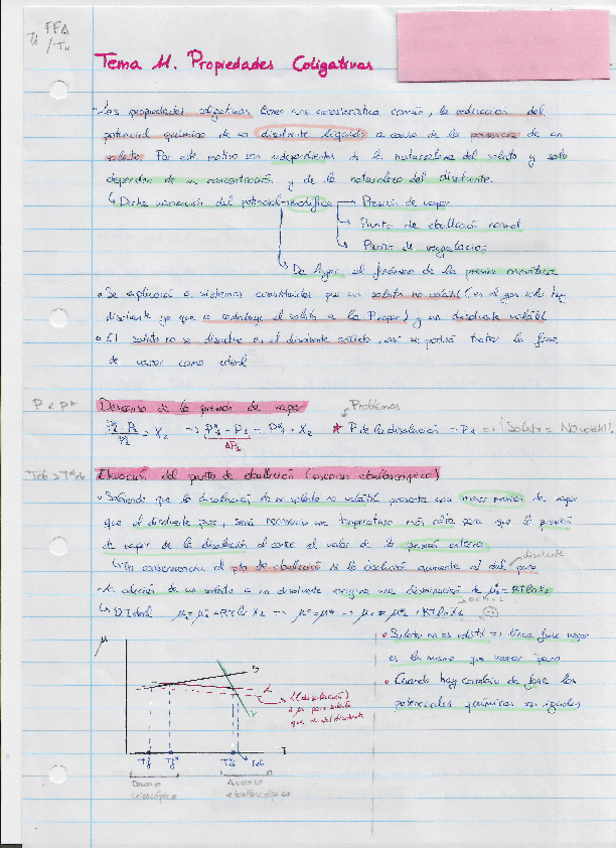 FFA
Tema 11. Propiedades Coligativas
- Las propiedades coligativas tienen una característica común, la reducción del
potencial químico de un disolvente líquido a causa de la presencia de un
soluto. Por este motivo son independientes de la naturaleza del soluto y solo
dependen de su concentración y de la naturaleza del disolvente.
↳ Dicha variación del potencial modifica → Presión de vapor
→ Punto de ebullición normal
→ Punto de congelación
→ Da lugar al fenómeno de la presión osmótica
• Se aplicará a sistemas constituidos por un soluto no volátil (en el gas solo hay
disolvente ya que no contribuye el soluto a la P vapor) y un disolvente volátil
• El soluto no se disuelve en el disolvente sólido, así se podrá tratar la fase
de vapor como ideal
P < P*
Descenso de la presión de vapor
Problemas
* P de la disolución
Soluto = NO volátil!
Teb > T*eb
Elevación del punto de ebullición (ascenso ebulloscópico)
• Sabiendo que la disolución de un soluto no volátil presenta una menor presión de vapor
que el disolvente puro, será necesario una temperatura más alta para que la presión
de vapor de la disolución alcance el valor de la presión externa
disolvente
↳ En consecuencia el pto de ebullición de la disolución aumenta
• La adición de un soluto a un disolvente origina una disminución de
↳ DI ideal
μ
• Soluto no es volátil → línea fase vapor
es la misma que vapor puro
• Cuando hay cambio de fase los
potenciales químicos son iguales
L (disolución)
T
Tf Tf* Teb
Descenso
crioscópico
Ascenso
ebulloscópico